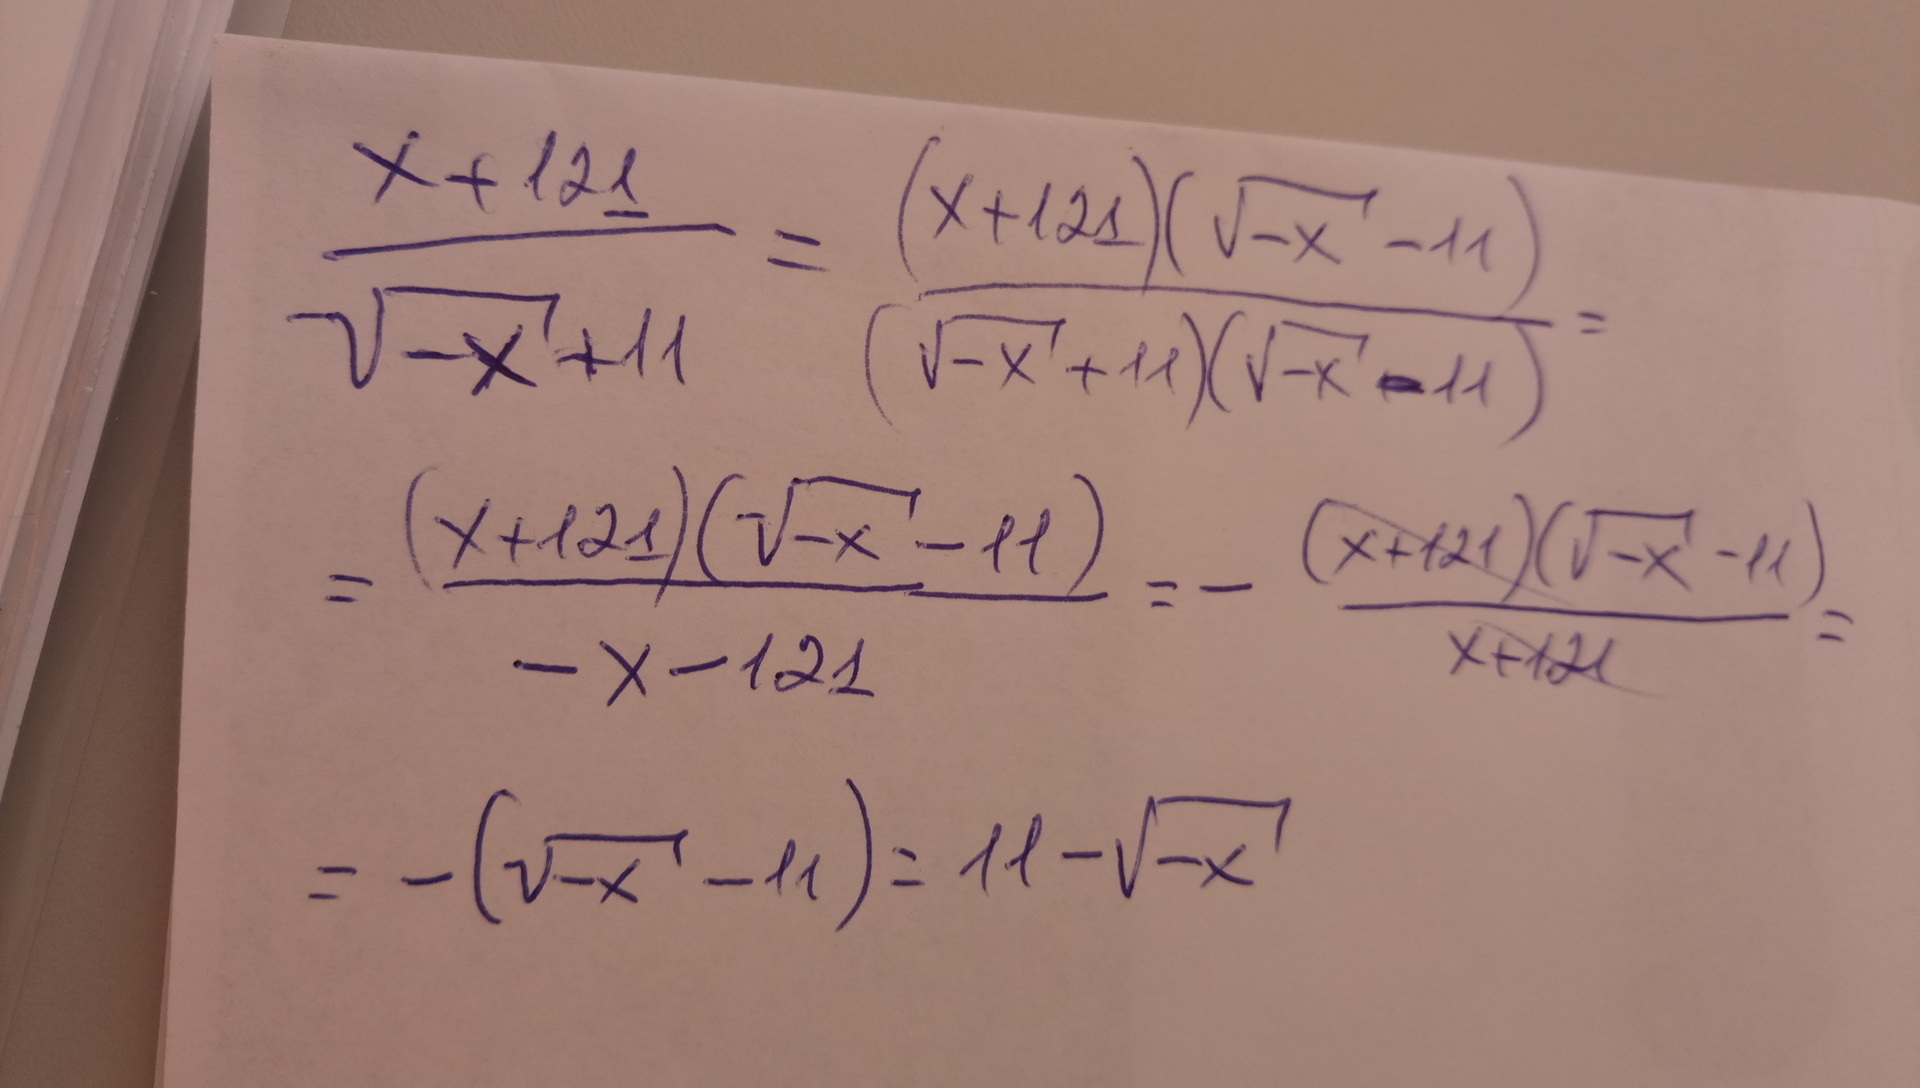 (x+121)/(√(-x)+11) = ((x+121)(√(-x)-11))/((√(-x)+11)(√(-x)-11)) =
= ((x+121)(√(-x)-11))/(-x-121) = - ((x+121)(√(-x)-11))/(x+121) =
= -(√(-x)-11) = 11-√(-x)